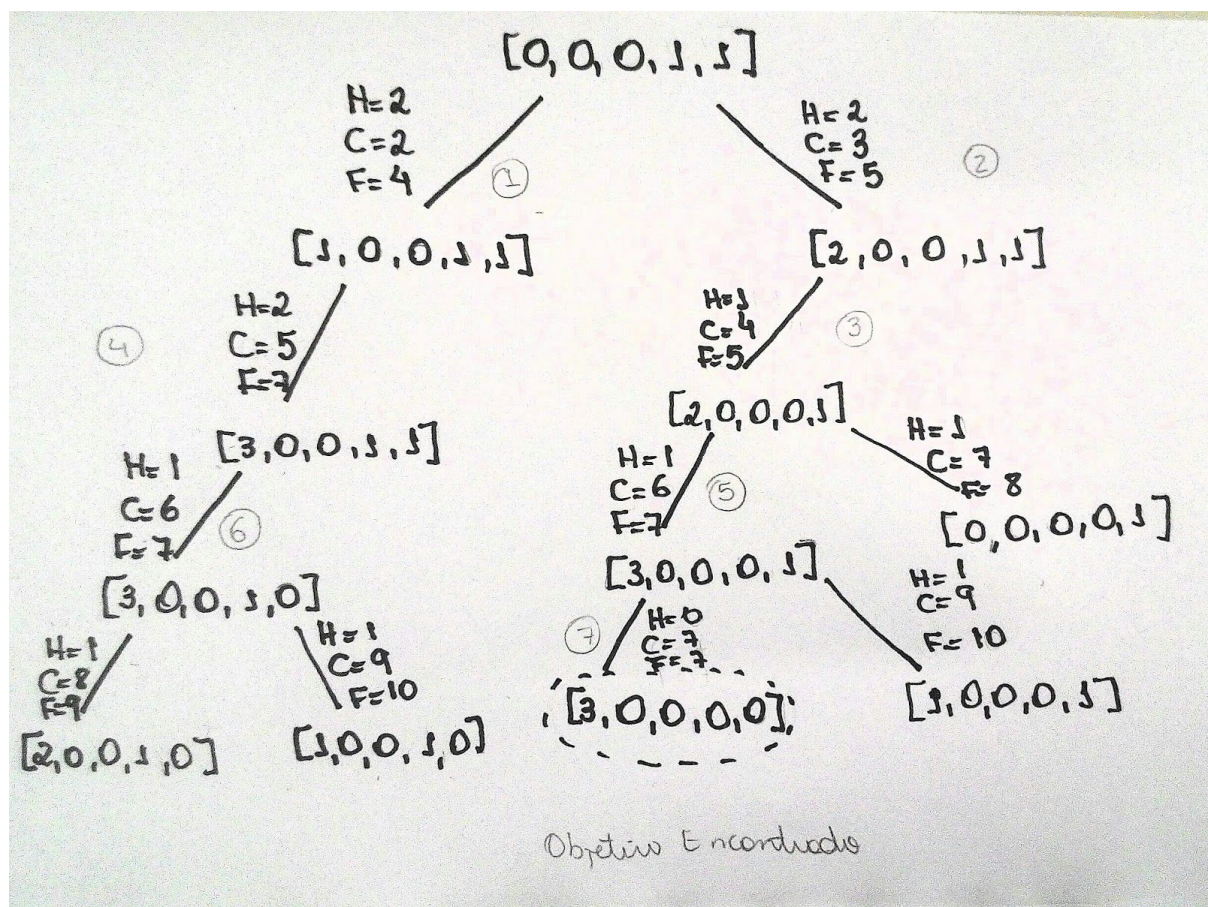 [0,0,0,1,1]
H=2
C=2
F=4
1
H=2
C=3
F=5
2
[1,0,0,1,1]
[2,0,0,1,1]
4
H=2
C=5
F=7
H=1
C=4
F=5
3
[3,0,0,1,1]
[2,0,0,0,1]
H=1
C=6
F=7
6
H=1
C=6
F=7
5
H=1
C=7
F=8
[3,0,0,1,0]
[3,0,0,0,1]
[0,0,0,0,1]
H=1
C=8
F=9
H=1
C=9
F=10
7
H=0
C=7
F=7
H=1
C=9
F=10
[2,0,0,1,0]
[1,0,0,1,0]
[3,0,0,0,0]
[1,0,0,0,1]
Objetivo Encontrado